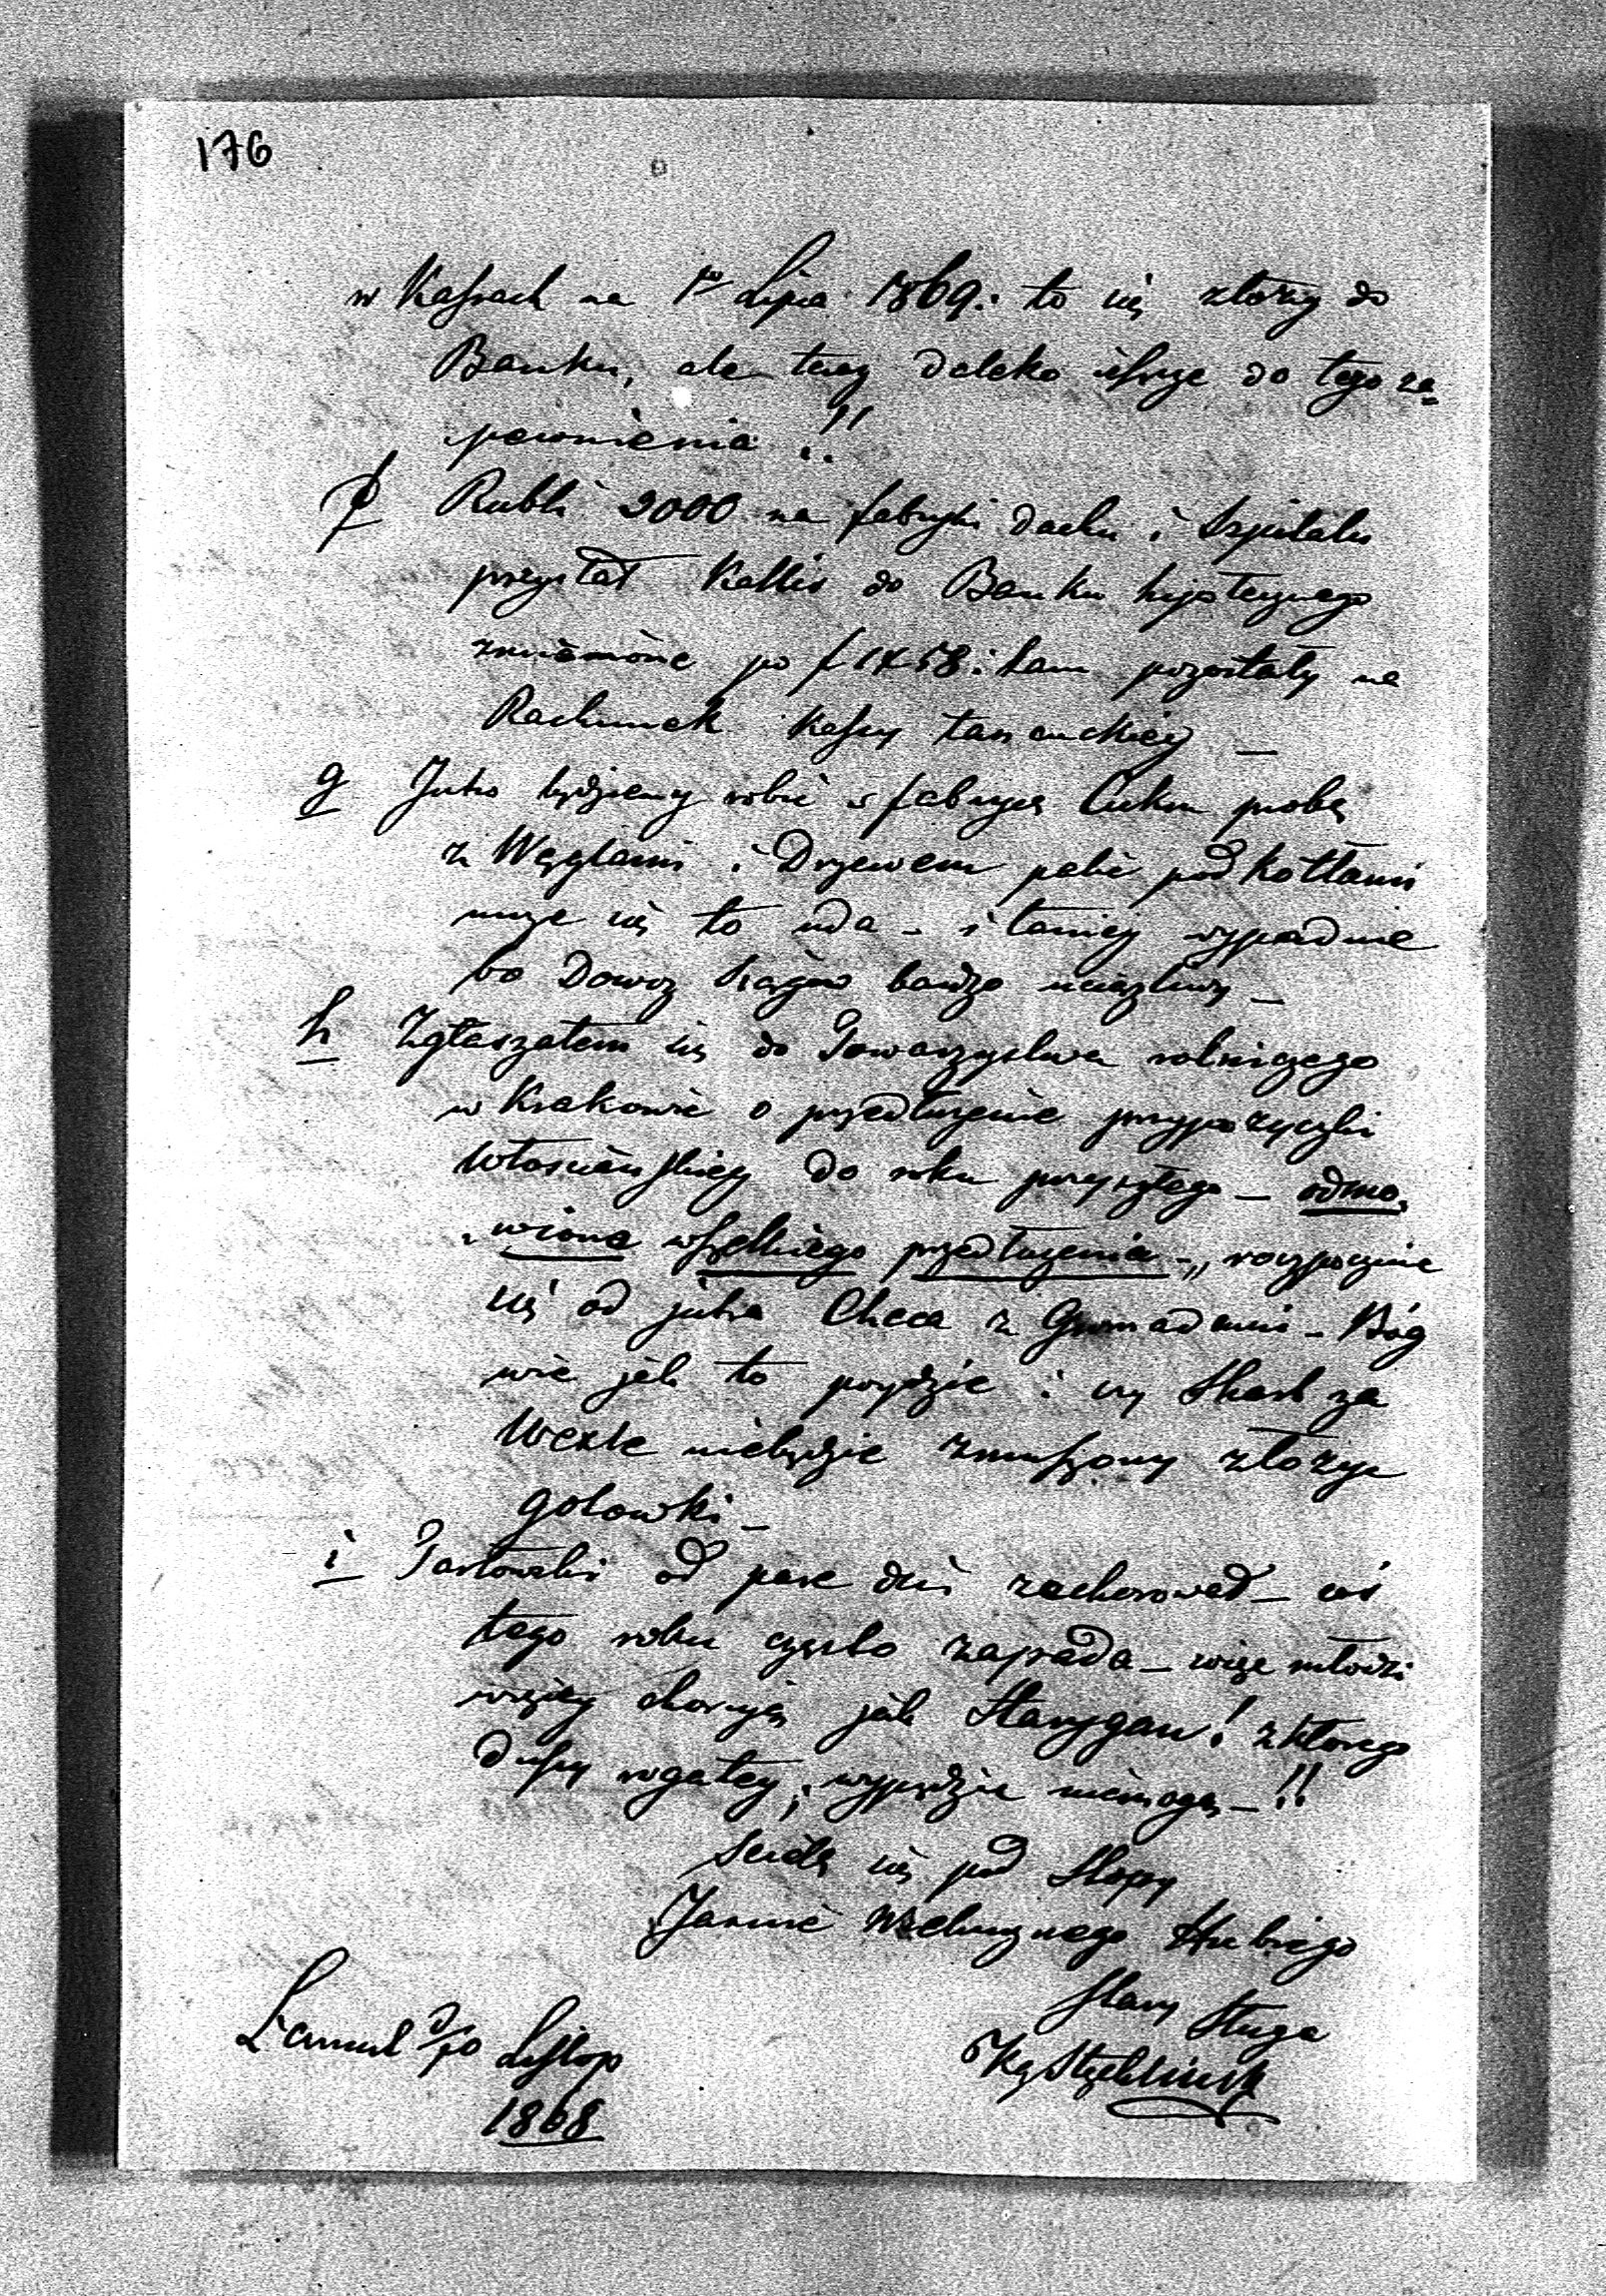 176
w Kassach na 1go Lipca 1869. to się złoży do
Banku, ale teraz daleko ieszcze do tego za=
pewnienia!!
f Rubli 2000 na fabryki dachu i Szpitalu
przysłał Kallir do Banku hipotecznego
zmienione po f 1 x 58: tam pozostały na
Rachunek Kassy Łancuckiey _
g Jutro będziemy robić w fabryce Cukru probę
z Węglami i Drzewem palić pod Kotłami
może się to uda _ i taniey wypadnie
bo Dowoz Sągów bardzo uciążliwy _
h Zgłaszałem się do Towarzystwa rolniczego
w Krakowie o przedłużenie przypożyczki
Włosciańskiey do roku przyszłego _ odmo„
„wiono wszelkiego przedłużenia _ „ rozpocznie
się od jutra Checa z Gromadami _ Bóg
wie jak to poydzie i czy Skarb za
Wexle niebędzie zmuszony złożyć
gotowki _
i Tarłowski od pare dni zachorował _ coś
tego roku często zapada _ więc młodzi
więcey chorują jak Starygan! z ktorego
duszy rogatey, wypędzić niemogą _!!
Scielę się pod Stopy
Jasnie Wielmoznego Hrabiego
Stary Sługa
Łancut d/10 Listop
1868